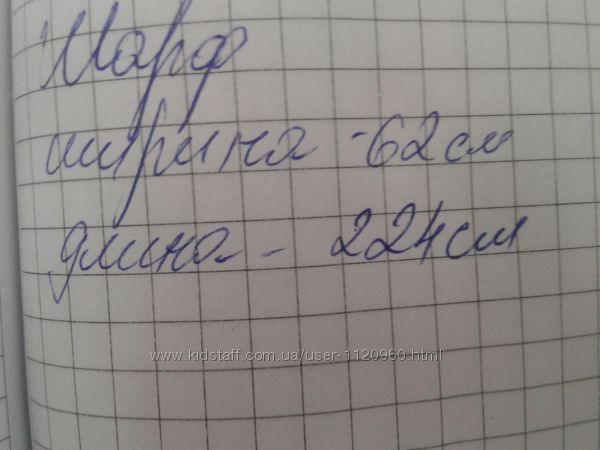 Шарф
ширина - 62 см
длина - 224 см
www.kidstaff.com.ua/user-1120960.html